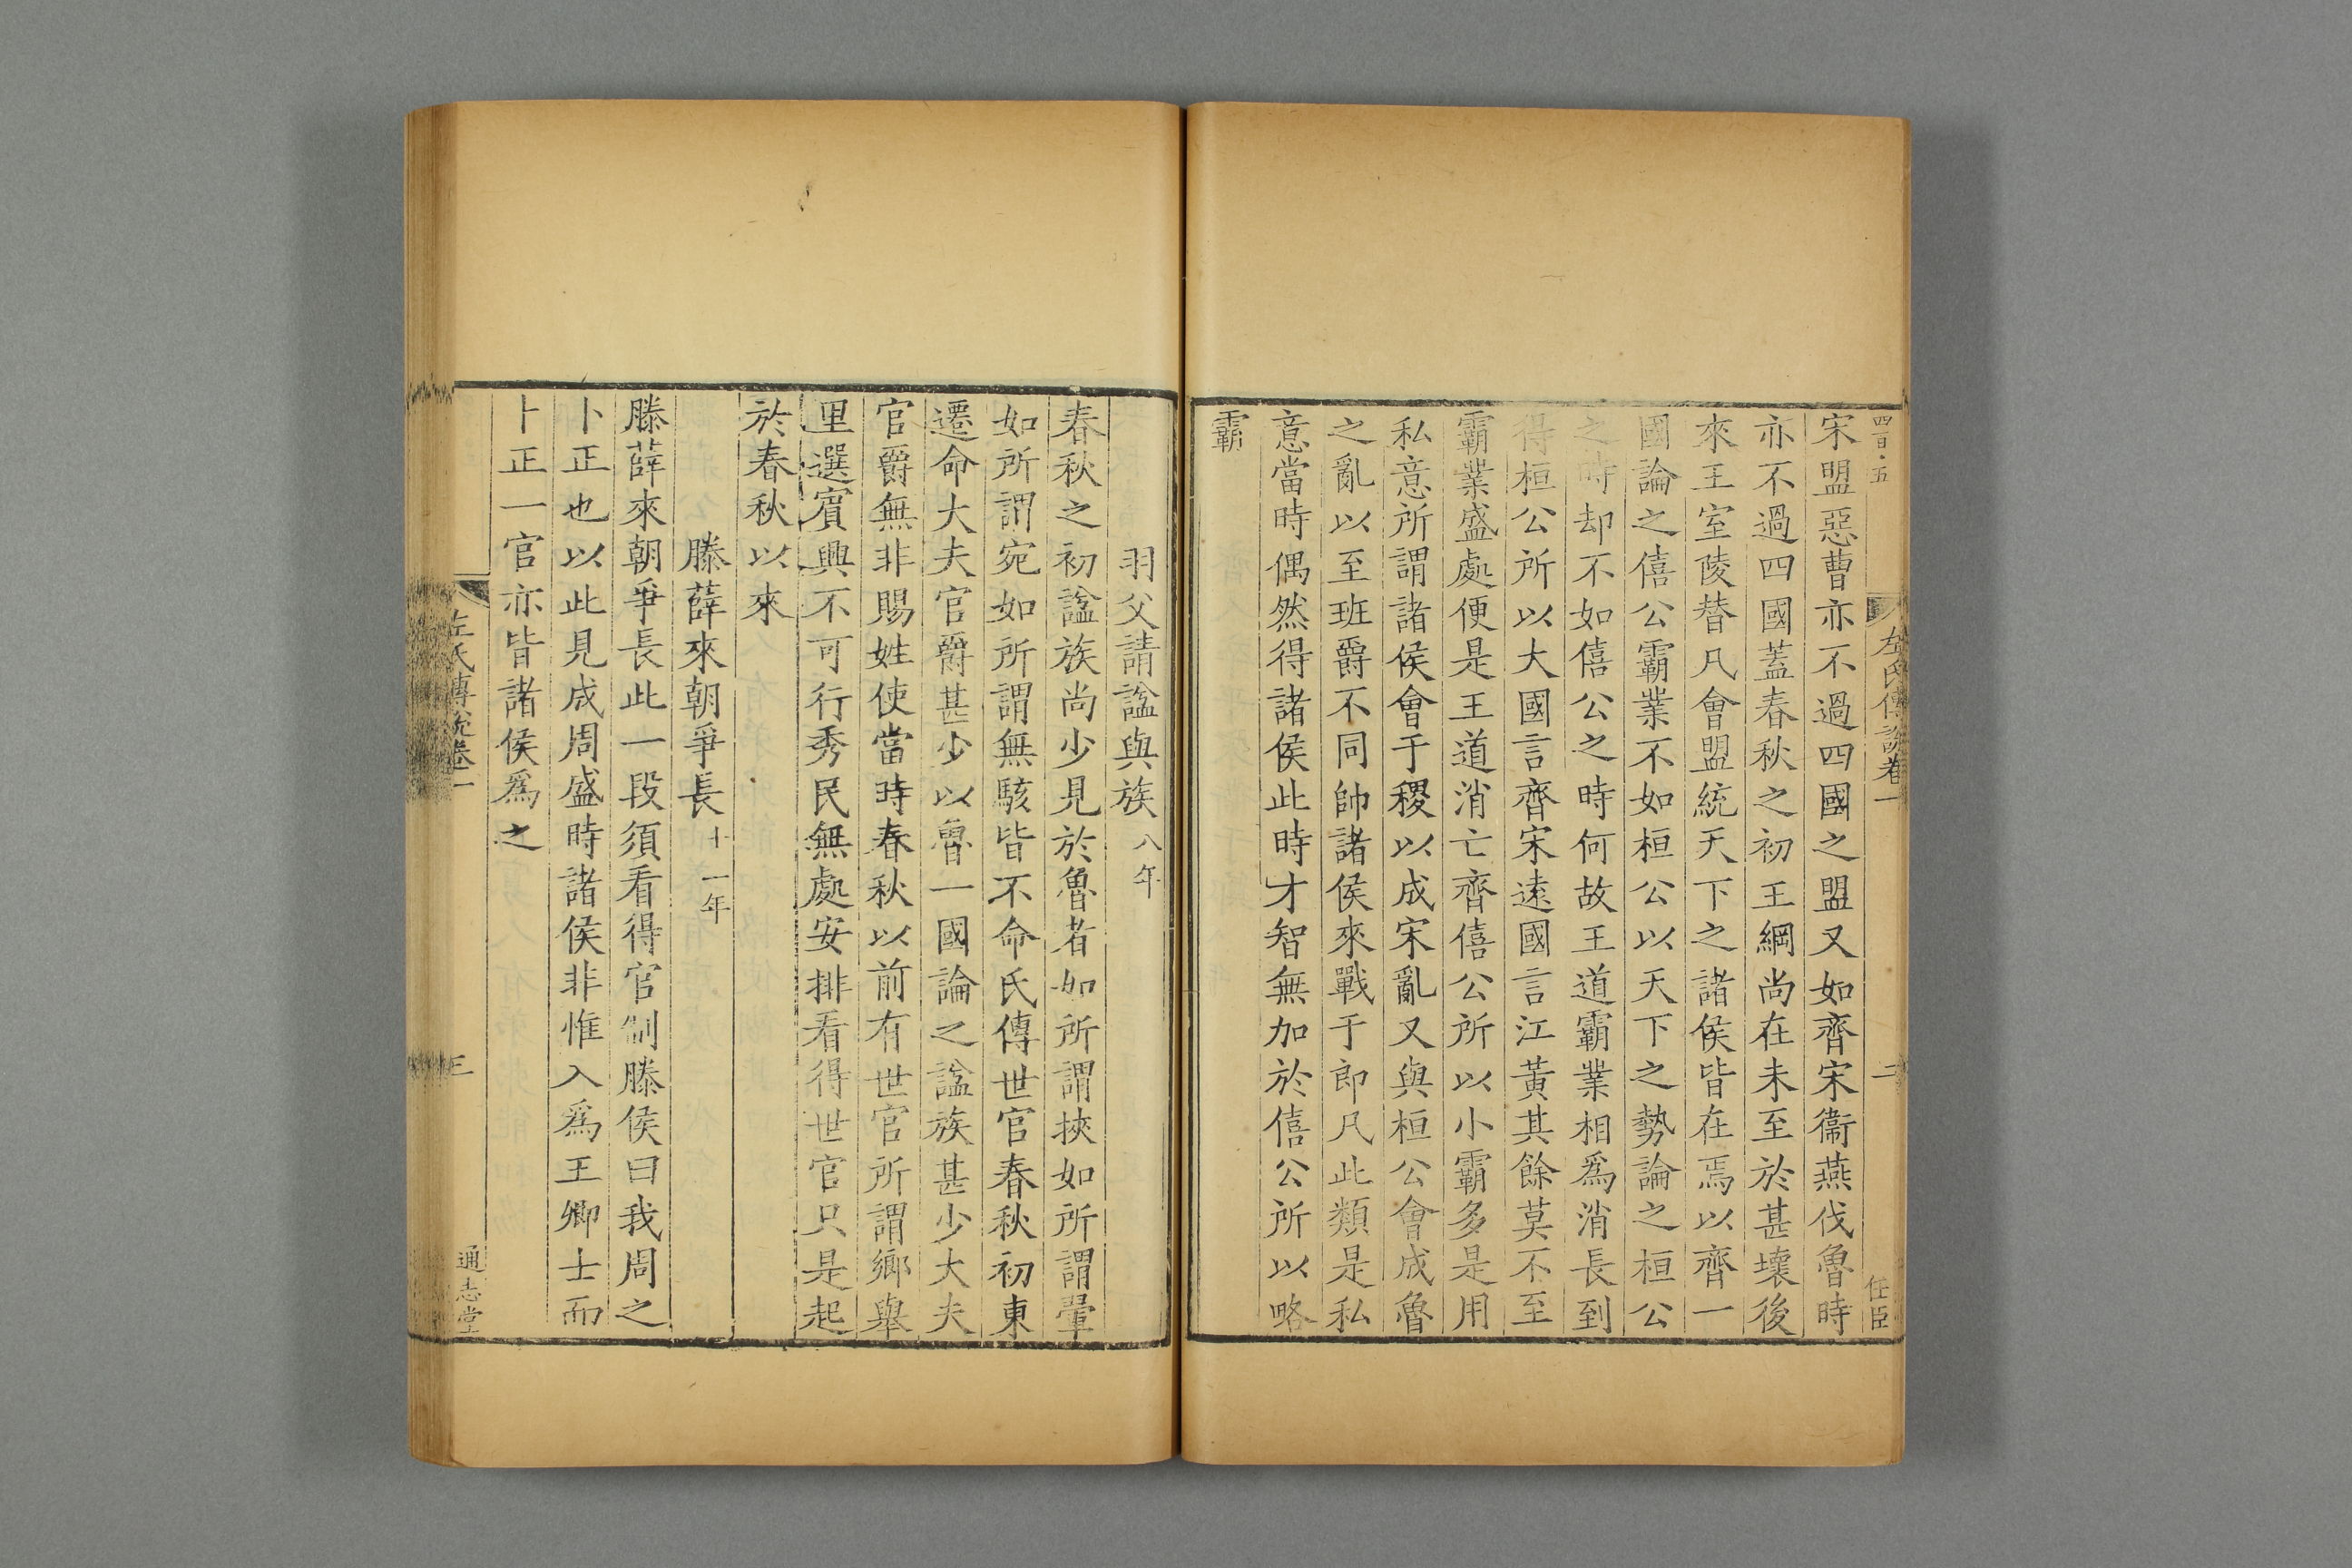 四百·五
左氏傳說卷一
二
任臣
宋盟惡曹亦不過四國之盟又如齊宋衞燕伐魯時
亦不過四國蓋春秋之初王綱尚在未至於甚壞後
來王室陵替凡會盟統天下之諸侯皆在焉以齊一
國論之僖公霸業不如桓公以天下之勢論之桓公
之時却不如僖公之時何故王道霸業相爲消長到
得桓公所以大國言齊宋遠國言江黃其餘莫不至
霸業盛處便是王道消亡齊僖公所以小霸多是用
私意所謂諸侯會于稷以成宋亂又與桓公會成魯
之亂以至班爵不同帥諸侯來戰于郎凡此類是私
意當時偶然得諸侯此時才智無加於僖公所以略
霸
羽父請諡與族八年
春秋之初諡族尚少見於魯者如所謂挾如所謂翬
如所謂宛如所謂無駭皆不命氏傳世官春秋初東
遷命大夫官爵甚少以魯一國論之諡族甚少大夫
官爵無非賜姓使當時春秋以前有世官所謂鄉舉
里選賓興不可行秀民無處安排看得世官只是起
於春秋以來
滕薛來朝爭長十一年
滕薛來朝爭長此一段須看得官制滕侯曰我周之
卜正也以此見成周盛時諸侯非惟入爲王卿士而
卜正一官亦皆諸侯爲之
左氏傳說卷一
三
通志堂